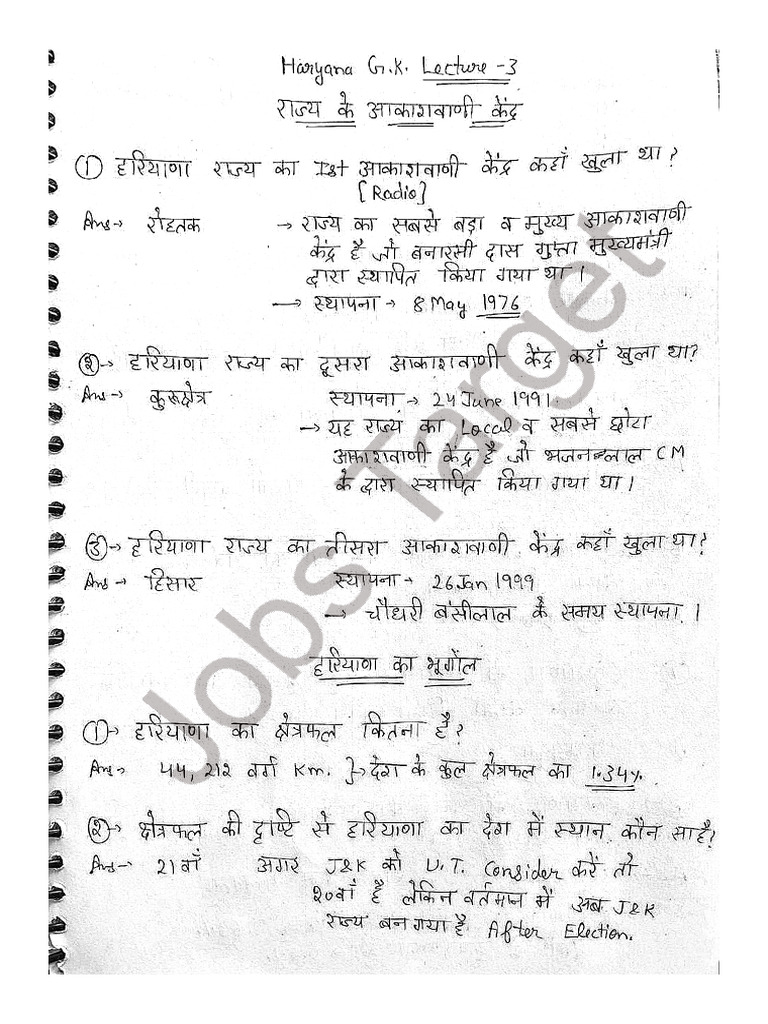 Haryana G.K. Lecture -3
राज्य के आकाशवाणी केंद्र
① हरियाणा राज्य का Ist आकाशवाणी केंद्र कहाँ खुला था?
[Radio]
Ans→ रोहतक → राज्य का सबसे बड़ा व मुख्य आकाशवाणी
केंद्र है जो बनारसी दास गुप्ता मुख्यमंत्री
द्वारा स्थापित किया गया था।
→ स्थापना → 8 May 1976
②→ हरियाणा राज्य का दूसरा आकाशवाणी केंद्र कहाँ खुला था?
Ans→ कुरूक्षेत्र स्थापना → 24 June 1991.
→ यह राज्य का Local व सबसे छोटा
आकाशवाणी केंद्र है जो भजनलाल CM
के द्वारा स्थापित किया गया था।
③→ हरियाणा राज्य का तीसरा आकाशवाणी केंद्र कहाँ खुला था?
Ans→ हिसार स्थापना → 26 Jan 1999
→ चौधरी बंसीलाल के समय स्थापना।
हरियाणा का भूगोल
①→ हरियाणा का क्षेत्रफल कितना है?
Ans→ 44,212 वर्ग Km. }→ देश के कुल क्षेत्रफल का 1.34%.
②→ क्षेत्रफल की दृष्टि से हरियाणा का देश में स्थान कौन सा है?
Ans→ 21वाँ अगर J&K को U.T. Consider करें तो
२०वाँ है लेकिन वर्तमान में अब J&K
राज्य बन गया है After Election.
Jobs Target